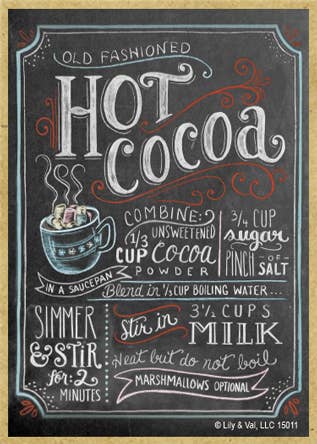 OLD FASHIONED
HOT
COCOA
COMBINE:
1/3 CUP
UNSWEETENED
COCOA
POWDER
3/4 CUP
sugar
PINCH -OF- SALT
IN A SAUCEPAN
Blend in 1/3 CUP BOILING WATER...
SIMMER
& STIR
for: 2
MINUTES
Stir in
3 1/2 CUPS
MILK
Heat but do not boil
MARSHMALLOWS OPTIONAL
© Lily & Val, LLC 15011